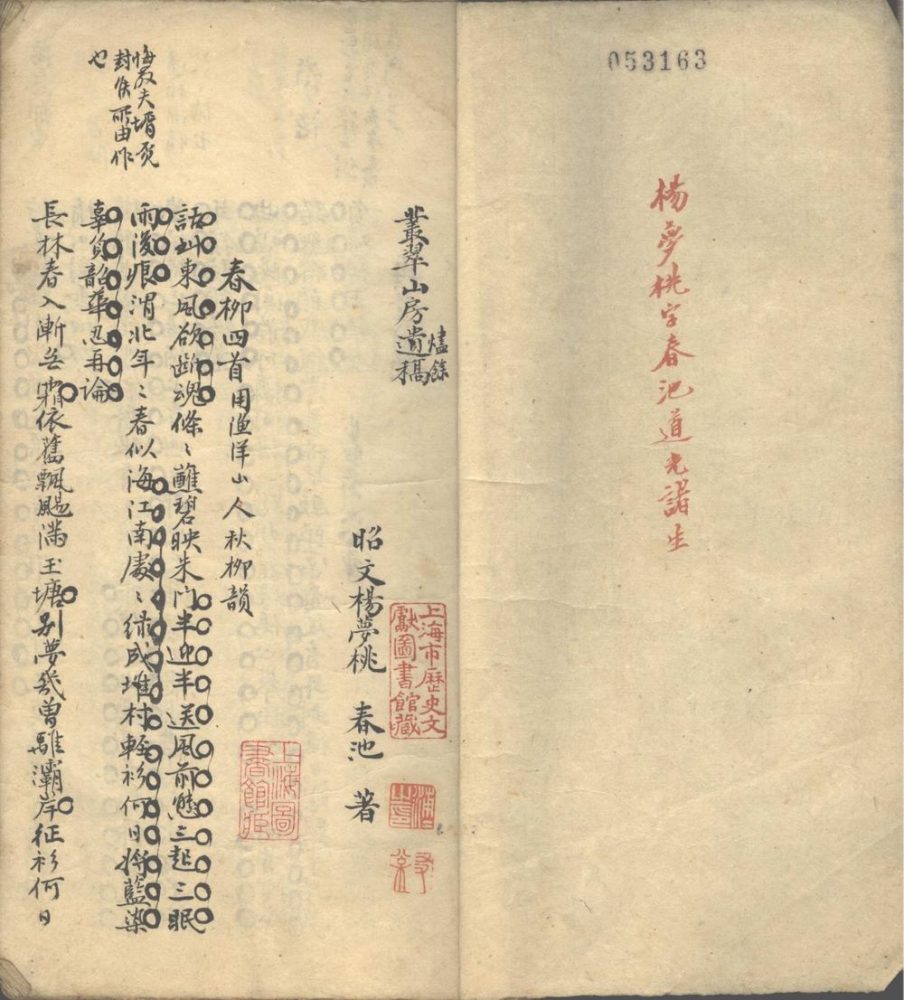 053163
楊夢桃字春池道光諸生
叢翠山房遺稿
燼餘
昭文楊夢桃 春池 著
上海市歷史文
獻圖書館藏
上海圖
書館藏
春柳四首用漁洋山人秋柳韻
話到東風欲斷魂條〻蘸碧映朱門半迎半送風前態三起三眠
雨後痕渭北年〻春似海江南處〻綠成堆村輕衫何日將藍染
辜負韶華忍再論
長林春入漸無霜依舊飄颺滿玉塘別夢幾曾離灞岸征衫何日
悔教夫壻覓
封侯所由作
也